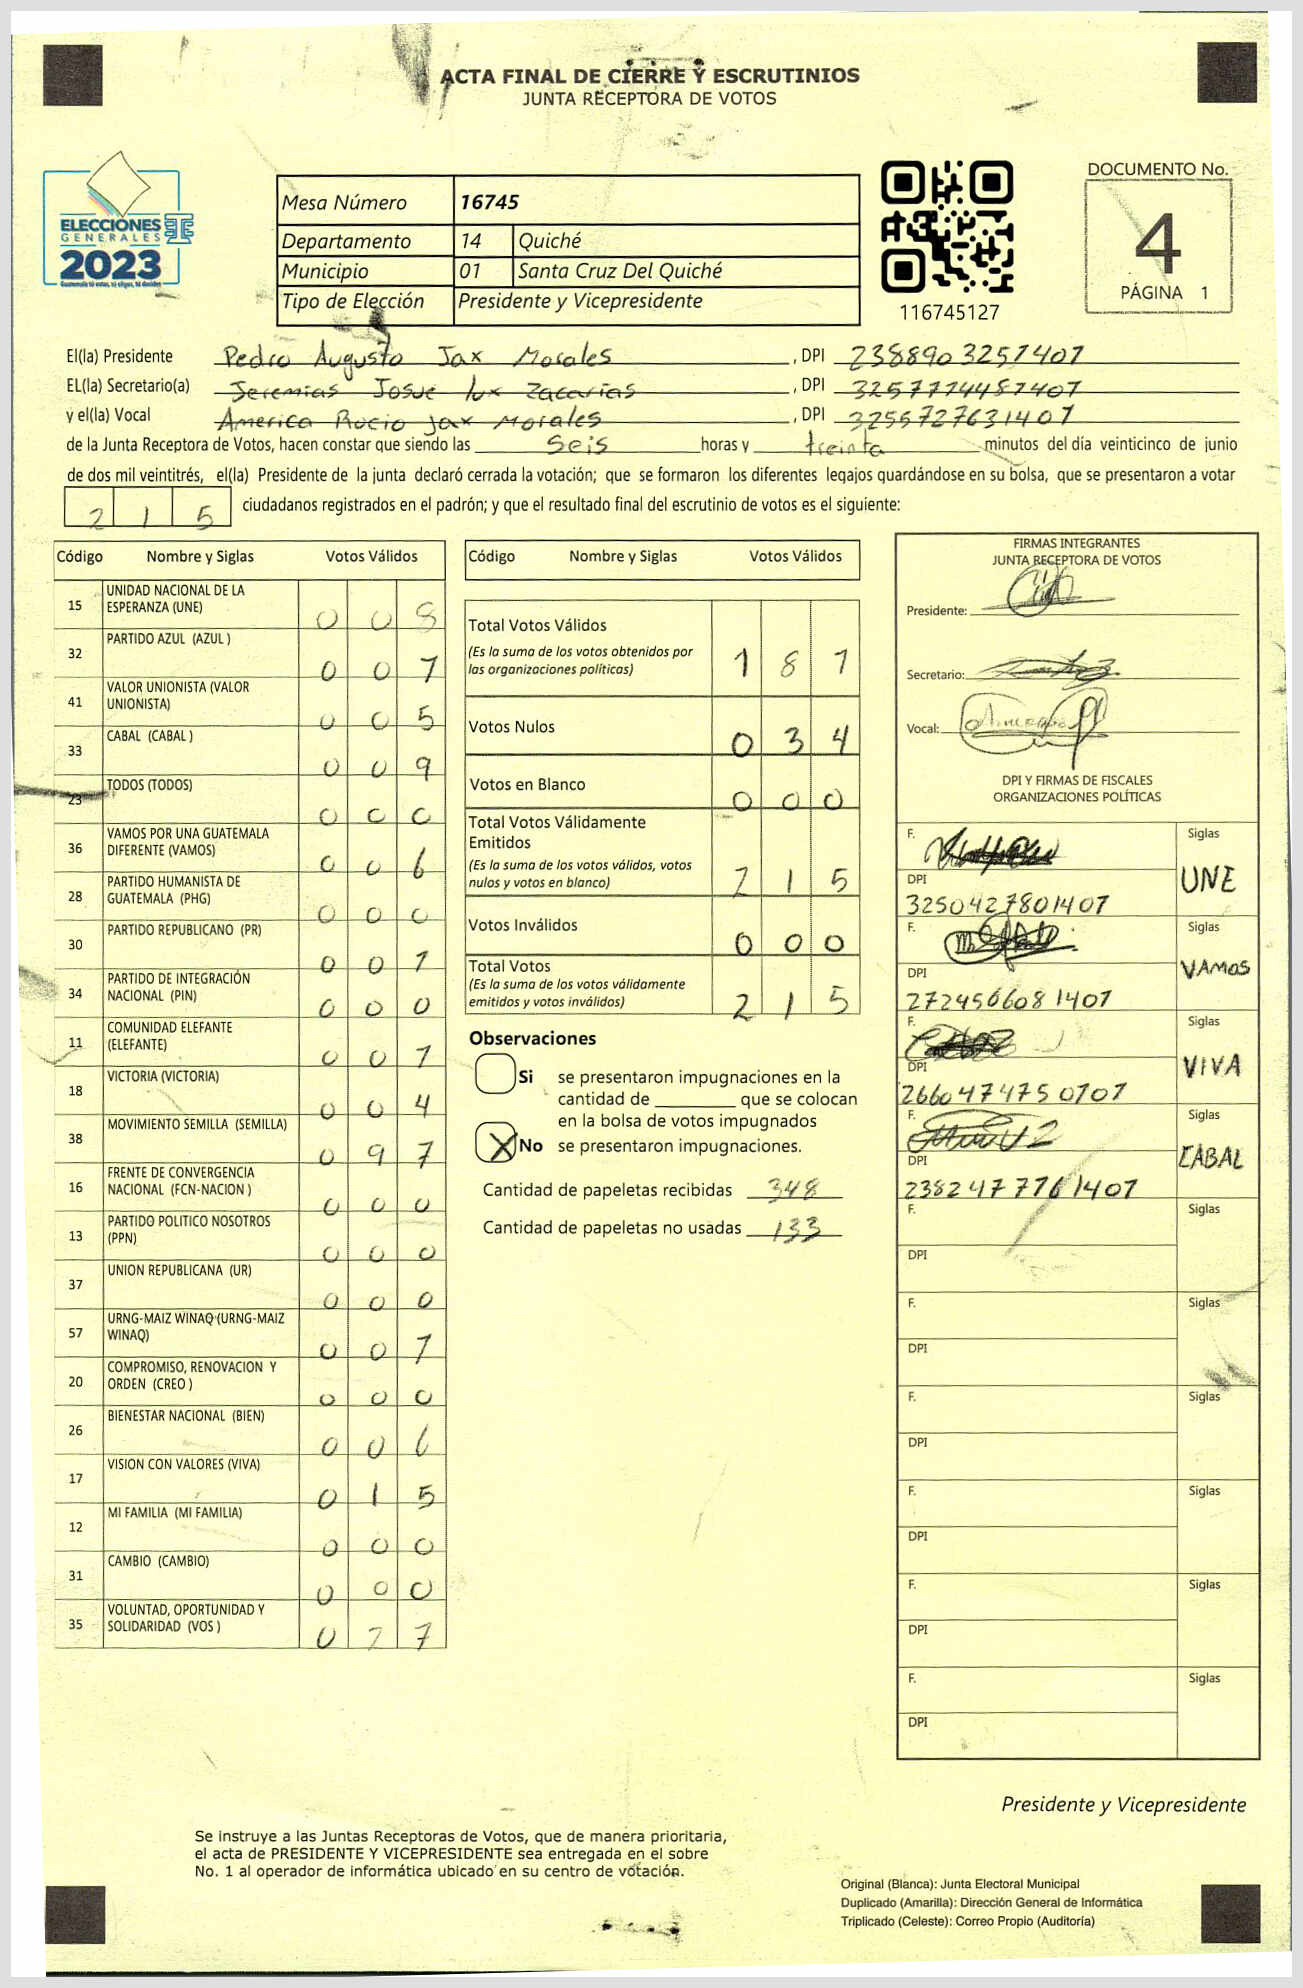 ACTA FINAL DE CIERRE Y ESCRUTINIOS
JUNTA RECEPTORA DE VOTOS
ELECCIONES
GENERALES
2023
Guatemala tú votas, tú eliges, tú decides
Mesa Número 16745
Departamento 14 Quiché
Municipio 01 Santa Cruz Del Quiché
Tipo de Elección Presidente y Vicepresidente
116745127
DOCUMENTO No.
4
PÁGINA 1
El(la) Presidente Pedro Augusto Jax Morales, DPI 2388903251401
EL(la) Secretario(a) Jeremias Josue lux Zacarias, DPI 3257774481401
y el(la) Vocal America Rocio Jax Morales, DPI 3255727631401
de la Junta Receptora de Votos, hacen constar que siendo las seis horas y treinta minutos del día veinticinco de junio
de dos mil veintitrés, el(la) Presidente de la junta declaró cerrada la votación; que se formaron los diferentes legajos guardándose en su bolsa, que se presentaron a votar
215 ciudadanos registrados en el padrón; y que el resultado final del escrutinio de votos es el siguiente:
Código Nombre y Siglas Votos Válidos
15 UNIDAD NACIONAL DE LA ESPERANZA (UNE) 008
32 PARTIDO AZUL (AZUL ) 007
41 VALOR UNIONISTA (VALOR UNIONISTA) 005
33 CABAL (CABAL ) 009
23 TODOS (TODOS) 000
36 VAMOS POR UNA GUATEMALA DIFERENTE (VAMOS) 006
28 PARTIDO HUMANISTA DE GUATEMALA (PHG) 000
30 PARTIDO REPUBLICANO (PR) 001
34 PARTIDO DE INTEGRACIÓN NACIONAL (PIN) 000
11 COMUNIDAD ELEFANTE (ELEFANTE) 001
18 VICTORIA (VICTORIA) 004
38 MOVIMIENTO SEMILLA (SEMILLA) 097
16 FRENTE DE CONVERGENCIA NACIONAL (FCN-NACION ) 000
13 PARTIDO POLITICO NOSOTROS (PPN) 000
37 UNION REPUBLICANA (UR) 000
57 URNG-MAIZ WINAQ (URNG-MAIZ WINAQ) 001
20 COMPROMISO, RENOVACION Y ORDEN (CREO ) 000
26 BIENESTAR NACIONAL (BIEN) 006
17 VISION CON VALORES (VIVA) 015
12 MI FAMILIA (MI FAMILIA) 000
31 CAMBIO (CAMBIO) 000
35 VOLUNTAD, OPORTUNIDAD Y SOLIDARIDAD (VOS ) 027
Código Nombre y Siglas Votos Válidos
Total Votos Válidos 181
(Es la suma de los votos obtenidos por
las organizaciones políticas)
Votos Nulos 034
Votos en Blanco 000
Total Votos Válidamente
Emitidos 215
(Es la suma de los votos válidos, votos
nulos y votos en blanco)
Votos Inválidos 000
Total Votos 215
(Es la suma de los votos válidamente
emitidos y votos inválidos)
Observaciones
Si se presentaron impugnaciones en la
cantidad de ________ que se colocan
en la bolsa de votos impugnados
X No se presentaron impugnaciones.
Cantidad de papeletas recibidas 348
Cantidad de papeletas no usadas 133
FIRMAS INTEGRANTES
JUNTA RECEPTORA DE VOTOS
Presidente:
Secretario:
Vocal:
DPI Y FIRMAS DE FISCALES
ORGANIZACIONES POLÍTICAS
F. Siglas
UNE
DPI
3250427801407
F. Siglas
VAMOS
DPI
2724566081401
F. Siglas
VIVA
DPI
2660474750101
F. Siglas
CABAL
DPI
2382477761401
F. Siglas
DPI
F. Siglas
DPI
F. Siglas
DPI
F. Siglas
DPI
F. Siglas
DPI
F. Siglas
DPI
Presidente y Vicepresidente
Se instruye a las Juntas Receptoras de Votos, que de manera prioritaria,
el acta de PRESIDENTE Y VICEPRESIDENTE sea entregada en el sobre
No. 1 al operador de informática ubicado en su centro de votación.
Original (Blanca): Junta Electoral Municipal
Duplicado (Amarilla): Dirección General de Informática
Triplicado (Celeste): Correo Propio (Auditoría)